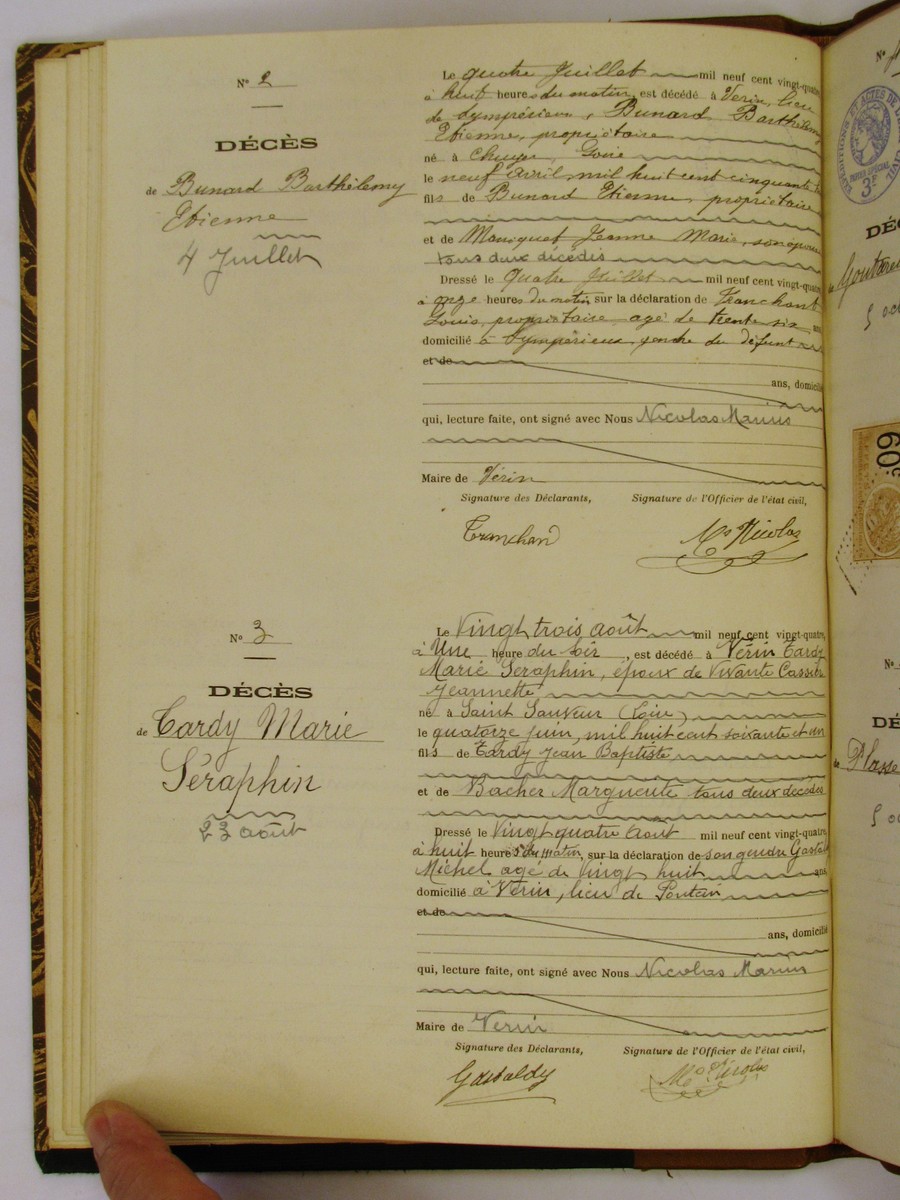 N° 2
DÉCÈS
de Bunard Barthélemy
Etienne
4 Juillet
Le quatre Juillet mil neuf cent vingt-quatre,
à neuf heures du matin, est décédé à Verin, lieu
de Sympérieux, Bunard Barthélemy
Etienne, propriétaire
né à Chuyer, Loire
le neuf avril mil huit cent cinquante
fils de Bunard Etienne, propriétaire
et de Maniquet Jeanne Marie, son épouse
tous deux décédés
Dressé le quatre Juillet mil neuf cent vingt-quatre
à onze heures du matin, sur la déclaration de Tranchant
Louis, propriétaire, agé de trente six ans
domicilié à Sympérieux, gendre du défunt
et de
ans, domicilié
qui, lecture faite, ont signé avec Nous Nicolas Marius
Maire de Vérin
Signature des Déclarants, Signature de l'Officier de l'état civil,
Tranchand Ms Nicolas
N° 3
DÉCÈS
de Tardy Marie
Séraphin
23 août
Le Vingt trois août mil neuf cent vingt-quatre,
à Une heure du soir, est décédé à Vérin Tardy
Marie Seraphin, époux de Vivante
Jeannette
né à Saint Sauveur (Loire)
le quatorze juin, mil huit cent soixante et un
fils de Tardy Jean Baptiste
et de Bacher Marguerite tous deux décédés
Dressé le Vingt quatre Août mil neuf cent vingt-quatre,
à huit heures du matin, sur la déclaration de son gendre
Michel agé de Vingt huit ans
domicilié à Vérin, lieu de
et de
ans, domicilié
qui, lecture faite, ont signé avec Nous Nicolas Marius
Maire de Verin
Signature des Déclarants, Signature de l'Officier de l'état civil,
Gastaldy Ms Nicolas
N°
3F
DÉC
5 oc
60
N°
DÉ
de Plasse
5 oc